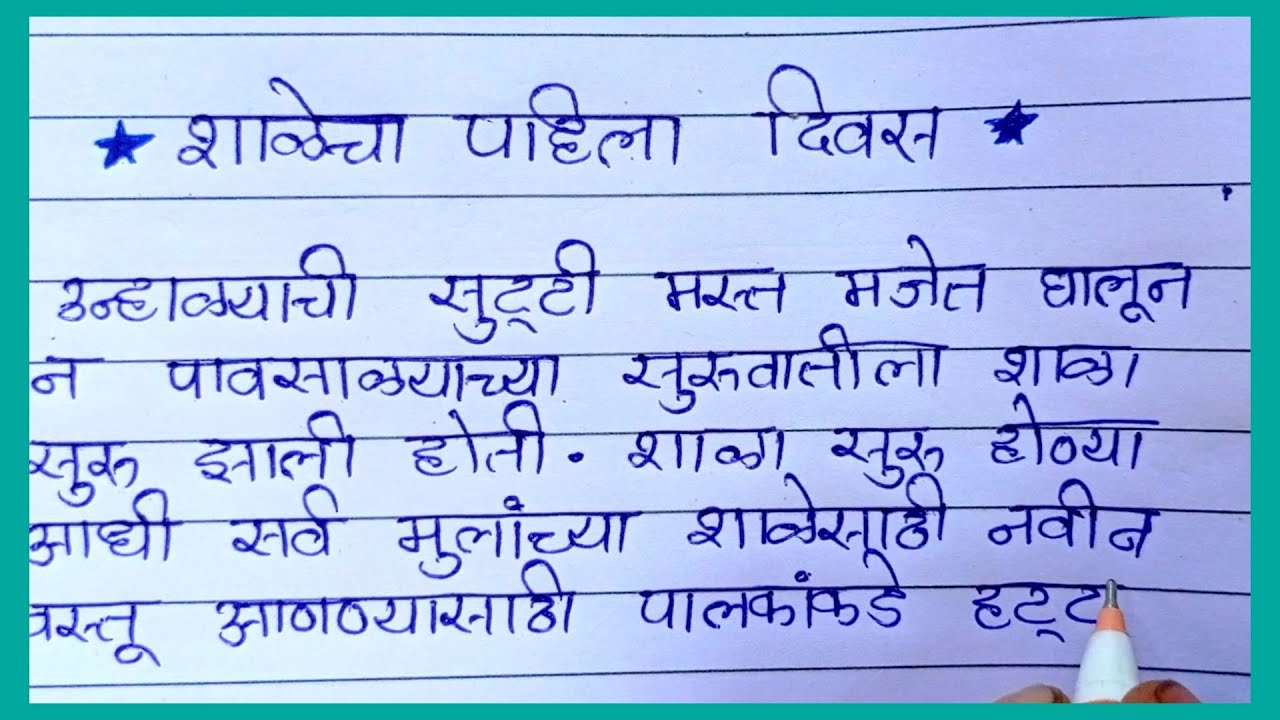 ★ शाळेचा पहिला दिवस ★
उन्हाळ्याची सुट्टी मस्त मजेत घालून
न पावसाळ्याच्या सुरुवातीला शाळा
सुरु झाली होती. शाळा सुरु होण्या
आधी सर्व मुलांच्या शाळेसाठी नवीन
वस्तू आणण्यासाठी पालकांकडे हट्ट